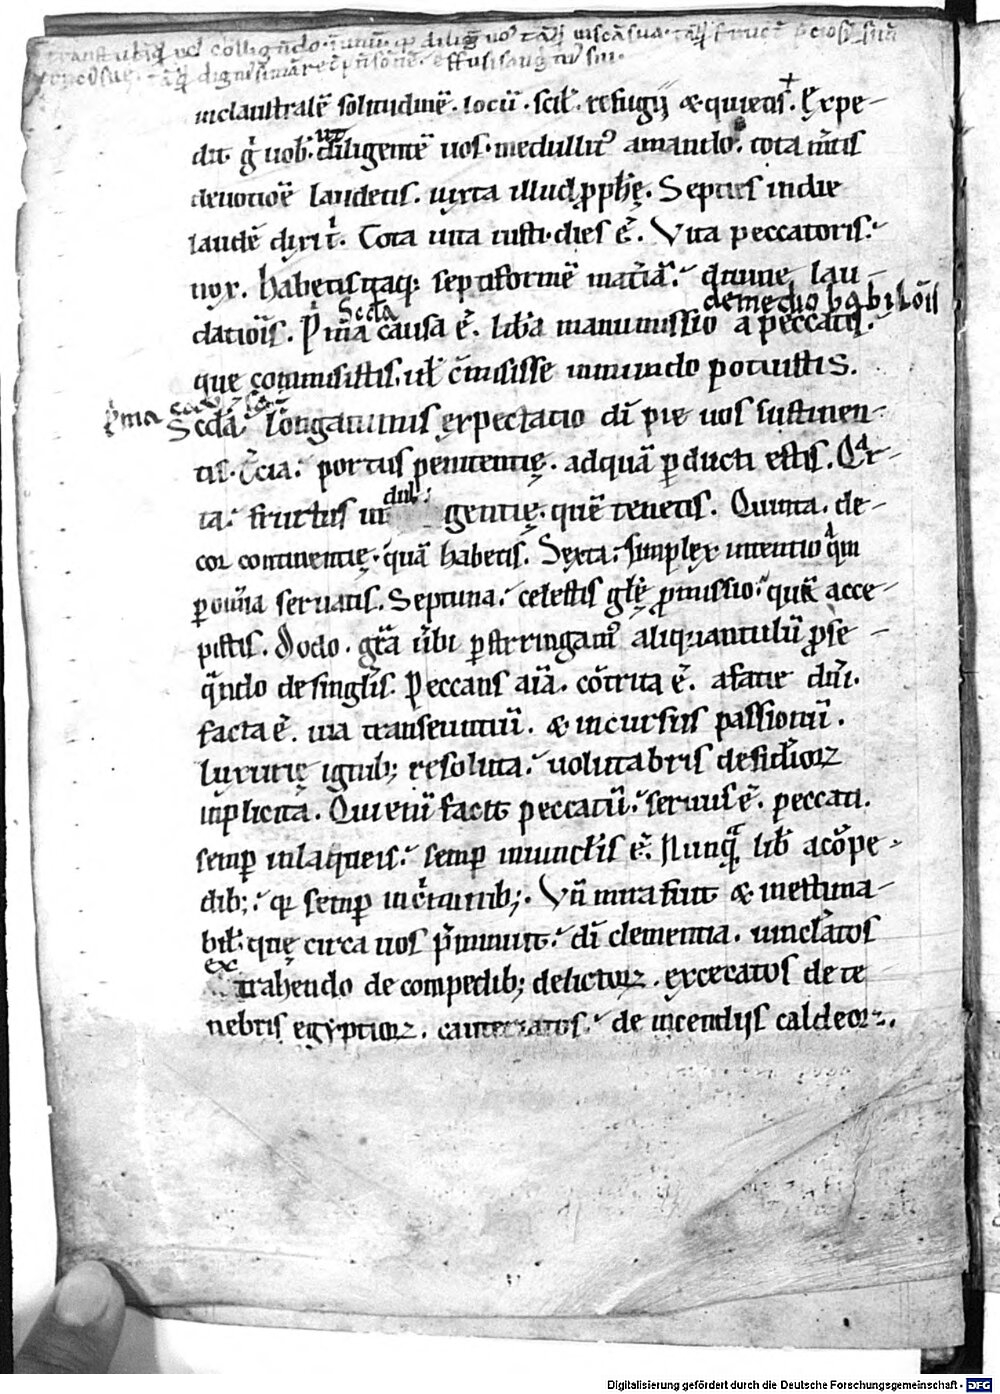 inclaustralē solitudinē. locū. scił. refugij & quietis. Expe-
dit g̊ uob̄. ut diligentē uos. medullit᷒ amando. tota m̄tis
deuotiōe laudetis. iuxta illud pph̄ę. Septies in die
laudē dixi t̄. Tota uita iusti. dies ē. Vita peccatoris.
nox. habetis itaq; septiformē mat̄iā. diuinę lau-
de medio babilōis
datiōis. Pima causa ē. lib̄a manumissio a peccatis.
que commisistis. uł c̄misisse in mundo potuistis.
Pima
Scd̄a. lōnganimis expectatio dī pie uos sustinen-
tis. T̄cia. portus penitentię. ad quā pducti estis. Qᵃr-
ta. fructus indulgentię. quē tenetis. Quinta. de-
cor continentię. quā habetis. Sexta. simplex intentio qm
p om̄ia seruatis. Septima. celestis glę pmissio. quā acce-
pistis. Modo. grā ūbi pstringam᷒ aliquantulū pse
qn̄do de singlis. Peccans aīa. cōtrita ē. a facie dn̄i.
facta ē. uia transeuntiū. & incursus passionū.
luxurię ignib; resoluta. uolutabris desidioꝝ
inplicita. Qui enī facit peccatū. seruus ē. peccati.
semp in laqueis. semp in uinclis ē. Nunqᵃ lib̄ a cōpe-
dib;. q semp in c̄minib;. Vn̄ mira sunt & inestima-
bił. quę circa uos p̄minuit. dī clementia. uinclatos
extrahendo de compedib; delictoꝝ. excecatos de te
nebris egyptioꝝ. cauteriatos. de incendijs caldeoꝝ.
Digitalisierung gefördert durch die Deutsche Forschungsgemeinschaft - DFG